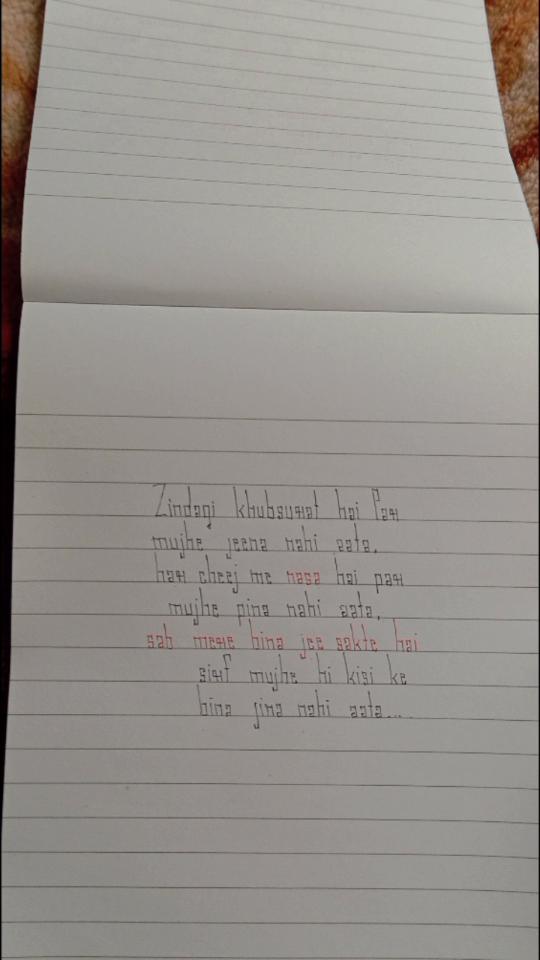 Zindagi khubsurat hai Par
mujhe jeena nahi aata.
har cheej me nasa hai par
mujhe pina nahi aata,
sab mere bina jee sakte hai
sirf mujhe hi kisi ke
bina jina nahi aata....